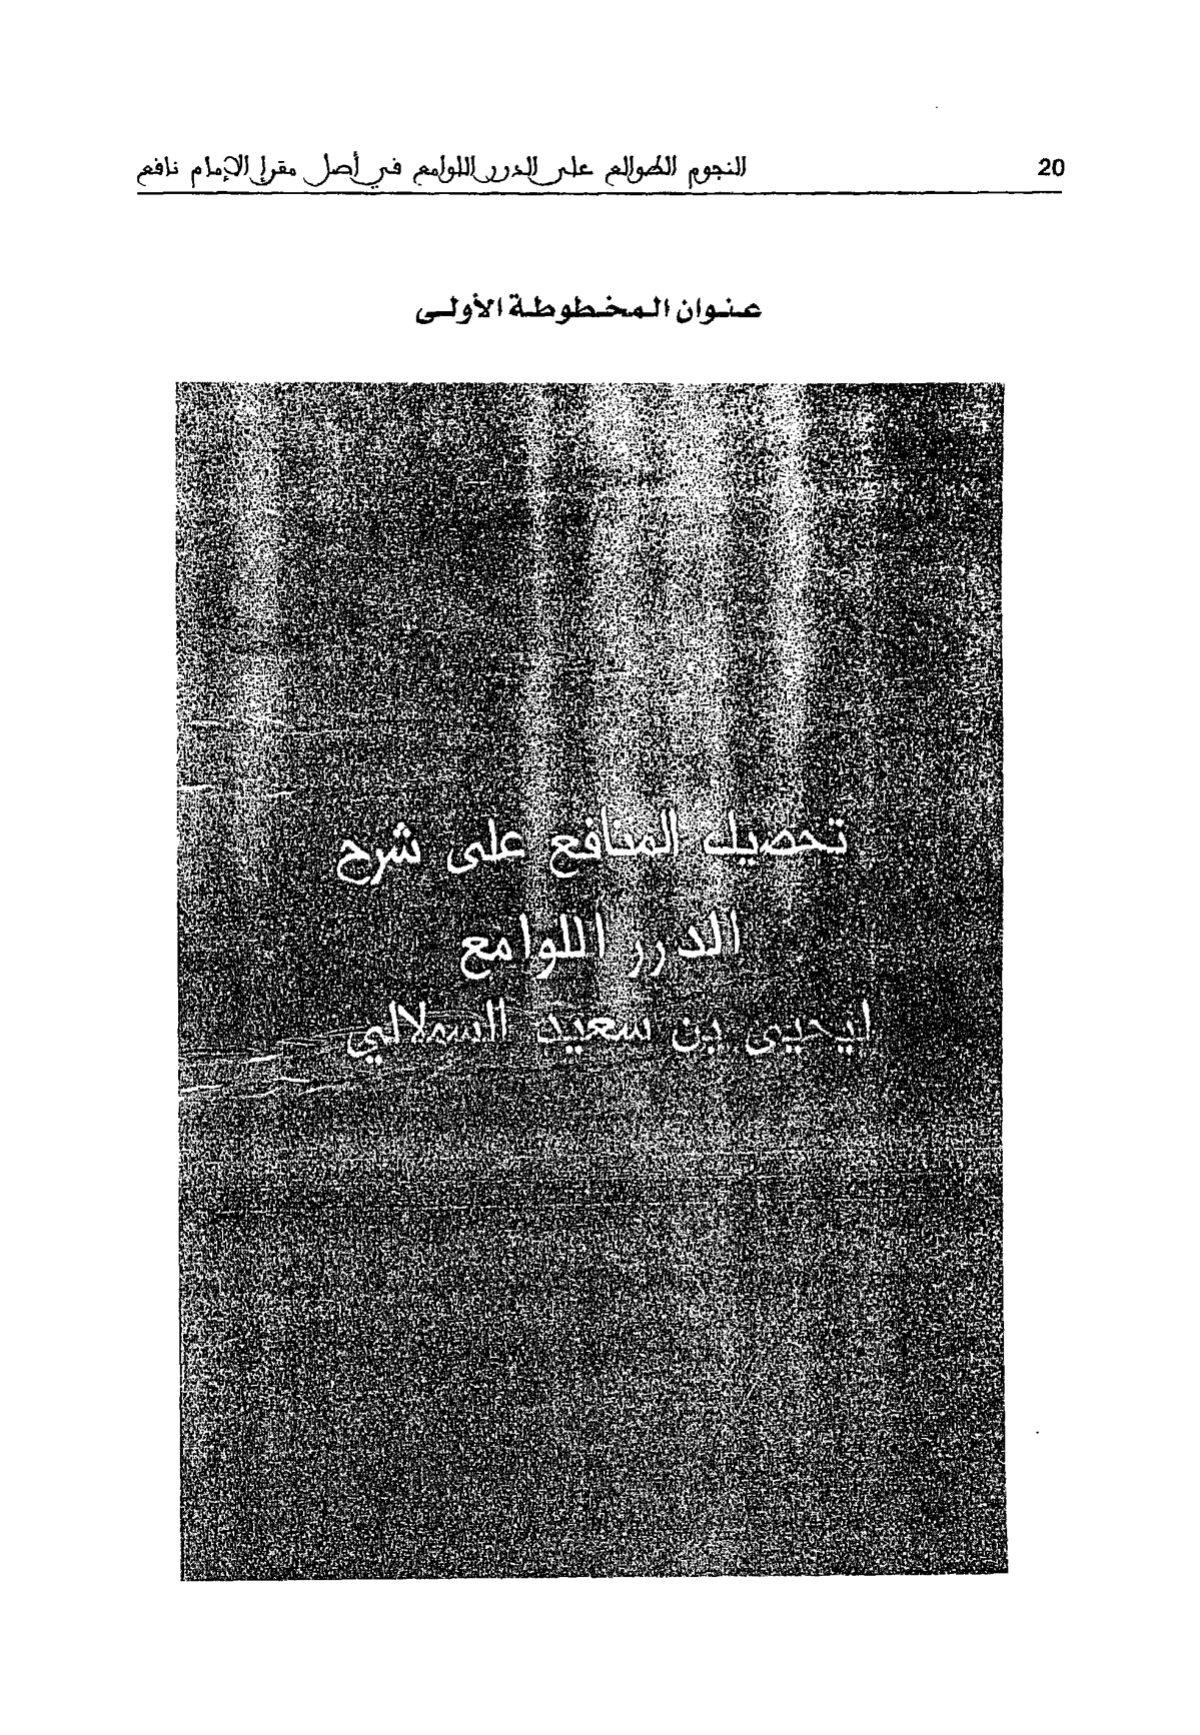 20
النجوم الطوالع على الدرر اللوامع في أصل مقرإ الإمام نافع
عنوان المخطوطة الأولى
تحصيل المنافع على شرح
الدرر اللوامع
ليحيى بن سعيد السملالي